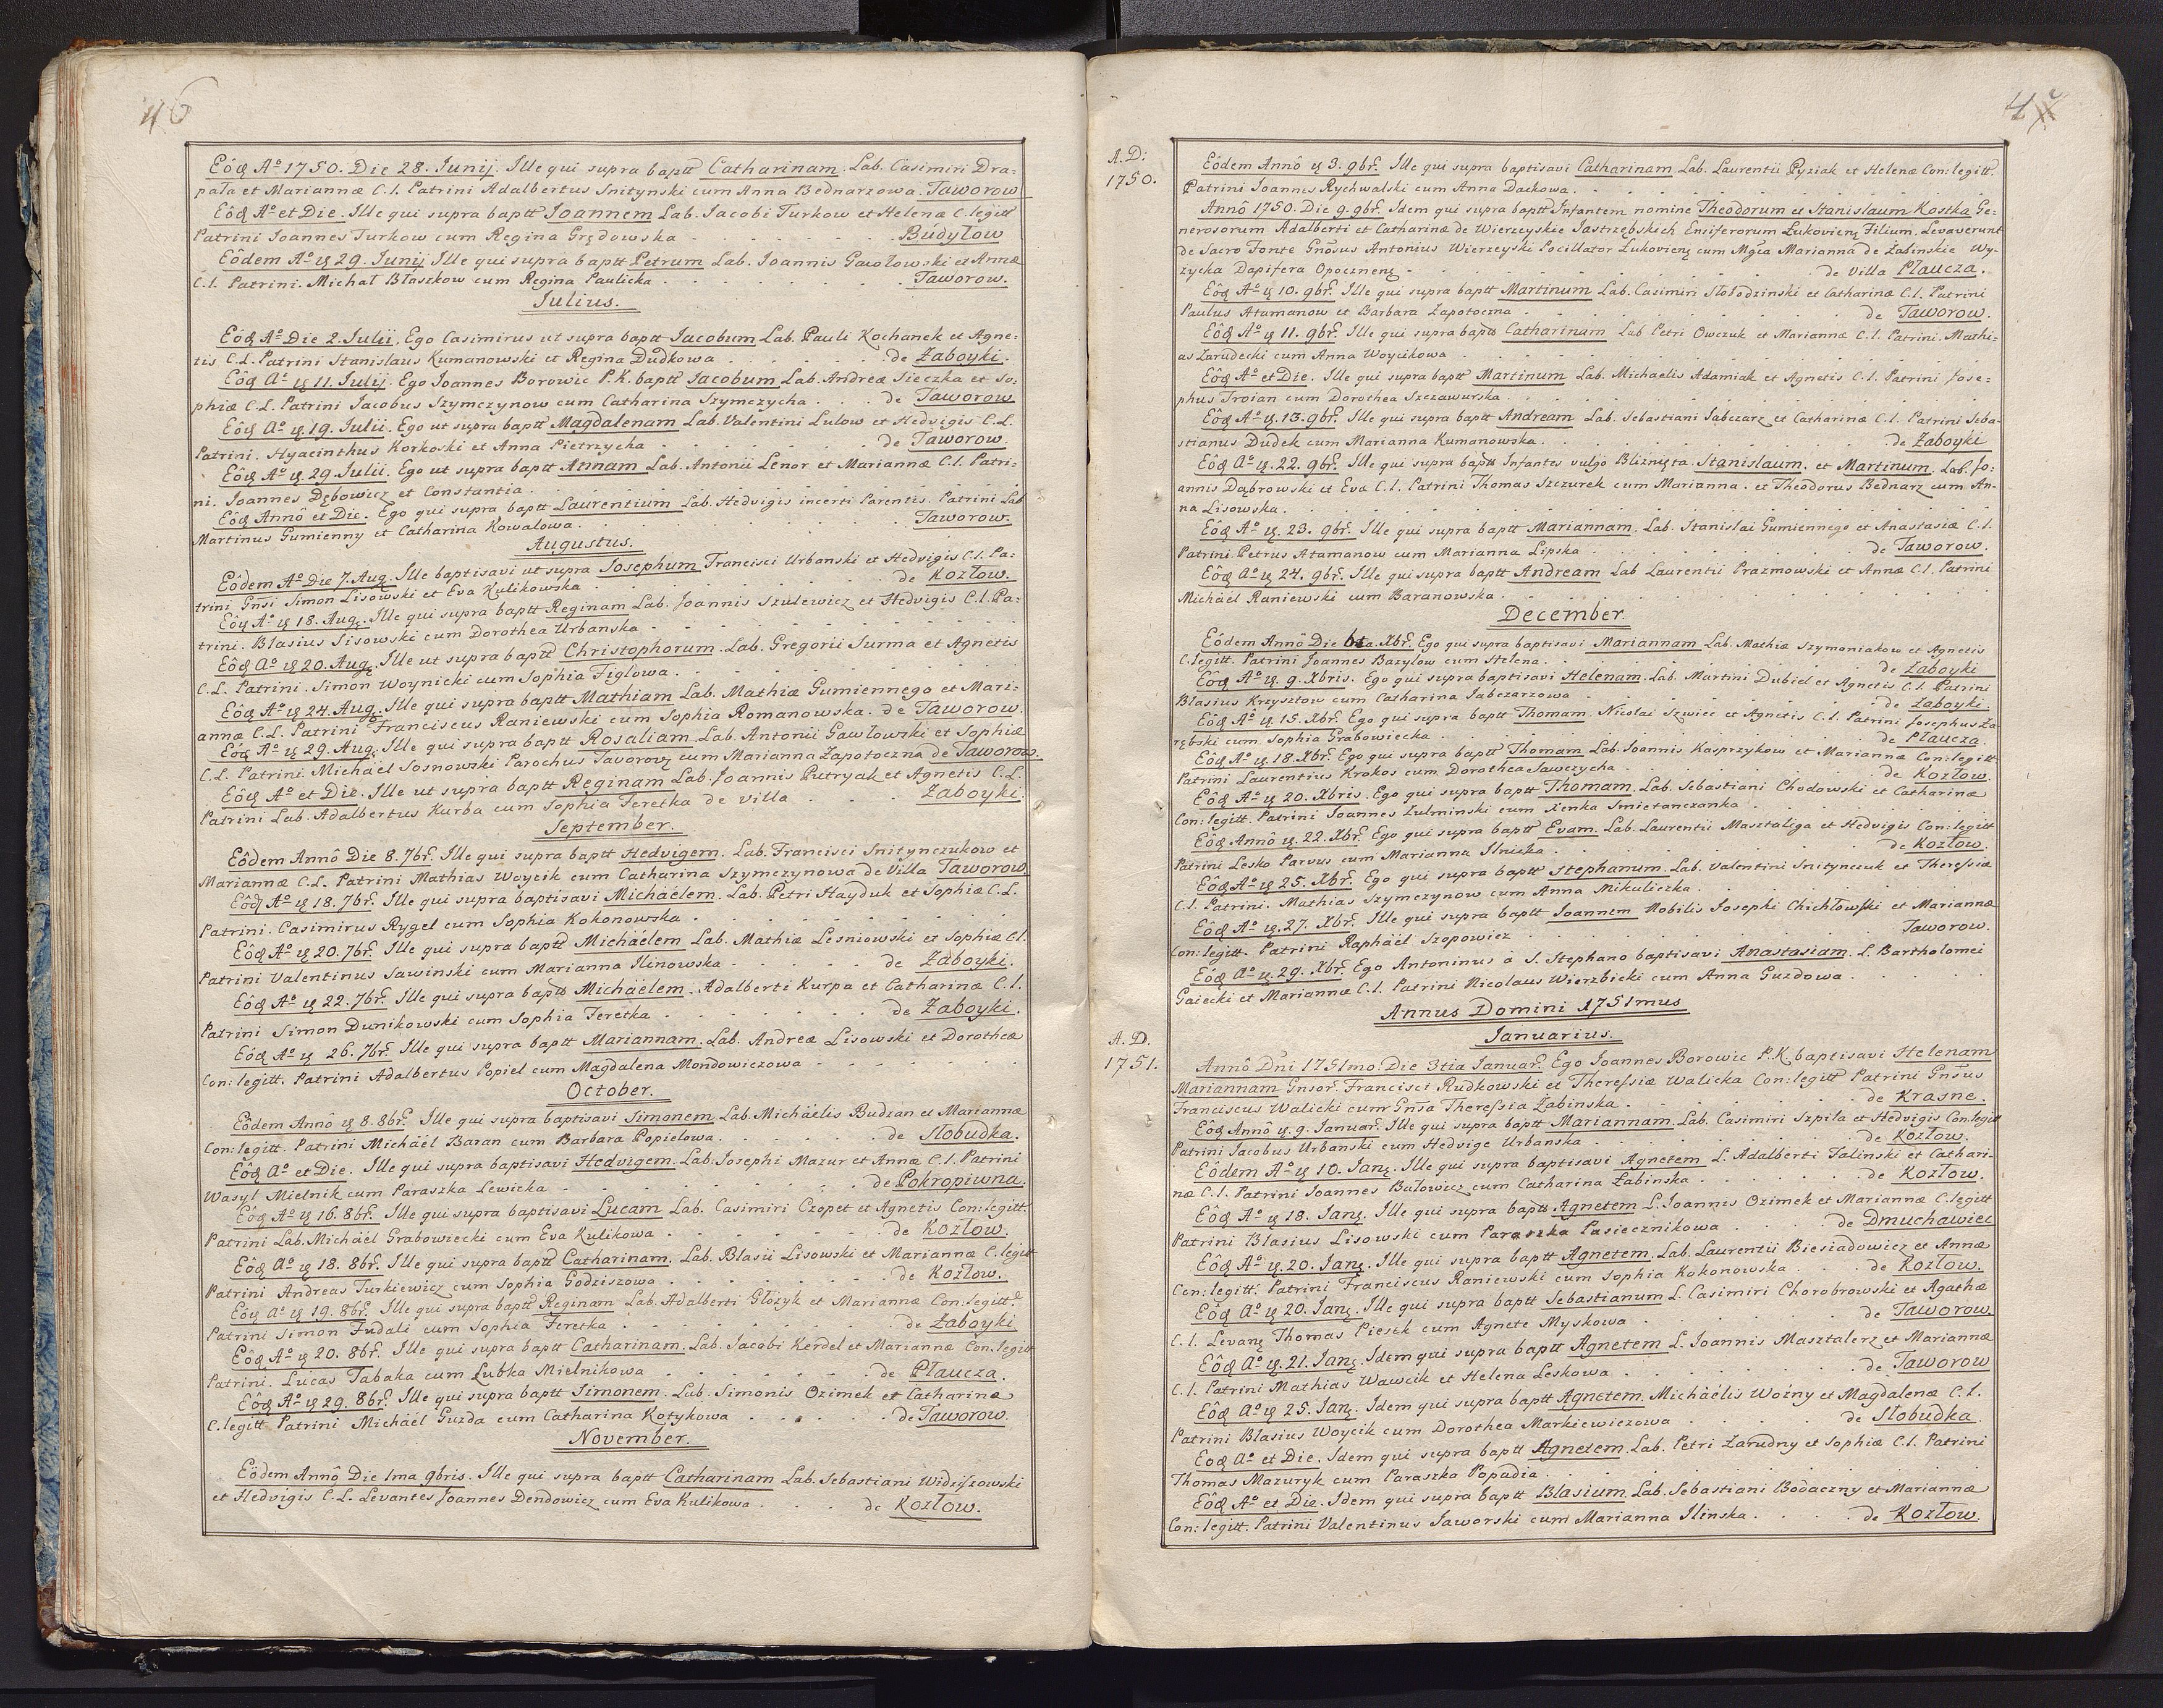 46
Eôđ Aº 1750. Die 28. Iunij. Ille qui supra baptt Catharinam. Lab. Casimiri Dra-
pała et Mariannæ C.l. Patrini Adalbertus Snitynski cum Anna Bednarzowa. Taworow
Eôđ Aº et Die. Ille qui supra baptt Ioannem Lab. Iacobi Turkow et Helenæ C. legitt
Patrini Ioannes Turkow cum Regina Grędowska . . . . . . . Budyłow
Eôdem Aº ıȩ 29. Iunij Ille qui supra baptt Petrum Lab. Ioannis Gawołowski et Annæ
C.l. Patrini. Michał Błaszkow cum Regina Paulicka . . . . . . . Taworow.
Iulius.
Eôđ Aº Die 2. Iulii. Ego Casimirus ut supra baptt Iacobum Lab. Pauli Kochanek et Agne-
tis C.L. Patrini Stanislaus Kumanowski et Regina Dudkowa . . . . . de Zaboyki.
Eôđ Aº ıȩ 11. Iulij. Ego Ioannes Borowic P.K. baptt Iacobum Lab. Andreæ Sieczka et So-
phiæ C.L. Patrini Iacobus Szymczynow cum Catharina Szymczycha . . . de Taworow
Eôđ Aº ıȩ 19. Iulii. Ego ut supra baptt Magdalenam Lab. Valentini Lulow et Hedvigis C.L.
Patrini. Hyacinthus Korkoski et Anna Pietrzycha . . . . . . . de Taworow.
Eôđ Aº ıȩ 29. Iulii. Ego ut supra baptt Annam Lab. Antonii Lenor et Mariannæ C.l. Patri-
ni. Ioannes Dębowicz et Constantia . . . . . . . . . . .
Eôđ Annô et Die. Ego qui supra baptt Laurentium Lab. Hedvigis incerti Parentis. Patrini Lab
Martinus Gumienny et Catharina Kowalowa . . . . . . . . Taworow.
Augustus.
Eôdem Aº Die 7. Aug. Ille baptisavi ut supra Iosephum Francisci Urbanski et Hedvigis C.l. Pa-
trini Gnsi Simon Lisowski et Eva Kulikowska . . . . . . . de Kozłow.
Eôđ Aº ıȩ 18. Aug. Ille qui supra baptt Reginam Lab. Ioannis Szulewicz et Hedvigis C.l. Pa-
trini. Blasius Lisowski cum Dorothea Urbanska . . . . . . .
Eôđ Aº ıȩ 20. Aug. Ille ut supra baptt Christophorum. Lab. Gregorii Surma et Agnetis
C.L. Patrini. Simon Woynicki cum Sophia Figlowa . . . . . . .
Eôđ Aº ıȩ 24. Aug. Ille qui supra baptt Mathiam Lab. Mathiæ Gumiennego et Mari-
annæ C.L. Patrini Franciscus Raniewski cum Sophia Romanowska. de Taworow.
Eôđ Aº ıȩ 29. Aug. Ille qui supra baptt Rosaliam Lab. Antonii Gawłowski et Sophiæ
C.L. Patrini. Michäel Sosnowski Parochus Tavorov cum Marianna Zapotoczna de Taworow.
Eôđ Aº et Die. Ille ut supra baptt Reginam Lab. Ioannis Putryak et Agnetis C.L.
Patrini Lab. Adalbertus Kurba cum Sophia Feretka de Villa . . . . Zaboyki.
September.
Eôdem Annô Die 8. 7br. Ille qui supra baptt Hedvigem. Lab. Francisci Snitynczukow et
Mariannæ C.L. Patrini Mathias Woycik cum Catharina Szymczynowa de Villa Taworow.
Eôđ Aº ıȩ 18. 7br. Ille qui supra baptisavi Michäelem. Lab. Petri Hayduk et Sophiæ C.L.
Patrini. Casimirus Rygel cum Sophia Kokonowska . . . . . . .
Eôđ Aº ıȩ 20. 7br. Ille qui supra baptt Michäelem Lab. Mathiæ Lesniowski et Sophiæ C.l.
Patrini Valentinus Sawinski cum Marianna Ilinowska . . . . . de Zaboyki.
Eôđ Aº ıȩ 22. 7br. Ille qui supra baptt Michäelem. Adalberti Kurpa et Catharinæ C.l.
Patrini Simon Dunikowski cum Sophia Feretka . . . . . . . de Zaboyki.
Eôđ Aº ıȩ 26. 7br. Ille qui supra baptt Mariannam. Lab. Andreæ Lisowski et Dorotheæ
Con: legitt. Patrini Adalbertus Popiel cum Magdalena Mondowiczowa . . . .
October.
Eôdem Annô ıȩ 8. 8br. Ille qui supra baptisavi Simonem. Lab. Michäelis Budzan et Mariannæ
Con: legitt. Patrini Michäel Baran cum Barbara Popielowa . . . . . de Słobudka.
Eôđ Aº et Die. Ille qui supra baptisavi Hedvigem. Lab. Iosephi Mazur et Annæ C.l. Patrini
Wasyl Mielnik cum Paraszka Lewicka . . . . . . . . de Pokropiwna.
Eôđ Aº ıȩ 16. 8br. Ille qui supra baptisavi Lucam Lab. Casimiri Czopet et Agnetis Con: legitt.
Patrini Lab. Michäel Grabowiecki cum Eva Kulikowa . . . . . . de Kozłow.
Eôđ Aº ıȩ 18. 8br. Ille qui supra baptt Catharinam. Lab. Blasii Lisowski et Mariannæ C. legitt
Patrini Andreas Turkiewicz cum Sophia Godziszowa . . . . . . de Kozłow.
Eôđ Aº ıȩ 19. 8br. Ille qui supra baptt Reginam Lab. Adalberti Głozyk et Mariannæ Con: legitt.
Patrini Simon Fudali cum Sophia Feretka . . . . . . . de Zaboyki
Eôđ Aº ıȩ 20. 8br. Ille qui supra baptt Catharinam. Lab. Iacobi Kerdel et Mariannæ Con. legitt
Patrini. Lucas Tabaka cum Lubka Mielnikowa . . . . . . de Płaucza.
Eôđ Aº ıȩ 29. 8br. Ille qui supra baptt Simonem. Lab. Simonis Ozimek et Catharinæ
C. legitt Patrini Michäel Guzda cum Catharina Kotykowa . . . . . de Taworow.
November.
Eôdem Annô Die 1ma 9bris. Ille qui supra baptt Catharinam Lab. Sebastiani Widziszowski
et Hedvigis C.L. Levantes Ioannes Dendowicz cum Eva Kulikowa . . . . de Kozłow.
A.D:
1750.
Eôdem Annô ıȩ 3. 9br. Ille qui supra baptisavi Catharinam Lab. Laurentii Pyziak et Helenæ Con: legitt.
Patrini Ioannes Rychwalski cum Anna Dackowa. . . . . . .
Annô 1750. Die 9. 9br. Idem qui supra baptt Infantem nomine Theodorum et Stanislaum Kostka Ge-
nerosorum Adalberti et Catharinæ de Wierzeyskie Iastrzębskich Ensiferorum Łukovien Filium. Levaverunt
de Sacro Fonte Gnosus Antonius Wierzeyski Pocillator Łukovien cum Mgca Marianna de Łabinskie Wy-
zycka Dapifera Opocznen . . . . . . . . de Villa Płaucza.
Eôđ Aº ıȩ 10. 9br. Ille qui supra baptt Martinum Lab. Casimiri Słołodzinski et Catharinæ C.l. Patrini
Paulus Atamanow et Barbara Zapotoczna . . . . . . . de Taworow.
Eôđ Aº ıȩ 11. 9br. Ille qui supra baptt Catharinam Lab Petri Owczuk et Mariannæ C.l. Patrini. Mathi-
as Zarudecki cum Anna Woycikowa . . . . . . .
Eôđ Aº et Die. Ille qui supra baptt Martinum Lab. Michaelis Adamiak et Agnetis C.l. Patrini Jose-
phus Troian cum Dorothea Szczawurska . . . . . . .
Eôđ Aº ıȩ 13. 9br. Ille qui supra baptt Andream Lab. Sebastiani Sabczarz et Catharinæ C.l. Patrini Seba-
stianus Dudek cum Marianna Kumanowska . . . . . . . de Zaboyki
Eôđ Aº ıȩ. 22. 9br. Ille qui supra baptt Infantes vulgo Bliznięta. Stanislaum. et Martinum. Lab. Jo-
annis Dąbrowski et Evæ C.l. Patrini Thomas Szczurek cum Marianna. et Theodorus Bednarz cum An-
na Lisowska . . . . . . .
Eôđ Aº ıȩ. 23. 9br. Ille qui supra baptt Mariannam. Lab. Stanislai Gumiennego et Anastasiæ C.l.
Patrini Petrus Atamanow cum Marianna Lipska . . . . . . . de Taworow.
Eôđ Aº ıȩ 24. 9br. Ille qui supra baptt Andream Lab Laurentii Prazmowski et Annæ C.l. Patrini
Michäel Raniewski cum Baranowska . . . . . . .
December.
Eôdem Annô Die 6ta. Xbr. Ego qui supra baptisavi Mariannam Lab. Mathiæ Szymoniakow et Agnetis
C. legitt. Patrini Ioannes Bazylow cum Helena . . . . . . . de Zaboyki
Eôđ Aº ıȩ. 9. Xbris. Ego qui supra baptisavi Helenam. Lab. Martini Dubiel et Agnetis C.l. Patrini
Blasius Krzysztow cum Catharina Sabczarzowa . . . . . . . de Zaboyki.
Eôđ Aº ıȩ. 15. Xbr. Ego qui supra baptt Thomam. Nicolai Szwiec et Agnetis C.l. Patrini Josephus Za-
rębski cum Sophia Grabowiecka . . . . . . . de Płaucza
Eôđ Aº ıȩ. 18. Xbr. Ego qui supra baptt Thomam Lab. Ioannis Kasprzykow et Mariannæ Con: legitt.
Patrini Laurentius Krokos cum Dorothea Sawczycha . . . . . . . de Kozłow.
Eôđ Aº ıȩ 20. Xbris. Ego qui supra baptt Thomam. Lab. Sebastiani Chodowski et Catharinæ
Con: legitt. Patrini Ioannes Zulminski cum Xenka Smietanczanka . . . . . .
Eôđ Annô ıȩ. 22. Xbr. Ego qui supra baptt Evam. Lab. Laurentii Masztaliga et Hedvigis Con: legitt
Patrini Lesko Parvus cum Marianna Ilnicka . . . . . . . de Kozłow.
Eôđ Aº ıȩ 25. Xbr. Ego qui supra baptt Stephanum. Lab. Valentini Snitynczuk et Theressiæ
C.l. Patrini. Mathias Szymczynow cum Anna Mikuliczka . . . . . . .
Eôđ Aº ıȩ. 27. Xbr. Ille qui supra baptt Ioannem Nobilis Iosephi Chichłowski et Mariannæ
Con: legitt. Patrini Raphäel Szopowicz . . . . . . . Taworow.
Eôđ Aº ıȩ. 29. Xbr. Ego Antoninus à S. Stephano baptisavi Anastasiam. L. Bartholomei
Gaiecki et Mariannæ C.l. Patrini Nicolaus Wierzbicki cum Anna Guzdowa . . . .
Annus Domini 1751mus
Ianuarius.
A.D.
1751.
Annô Dni 1751mo. Die 3tia Ianuar. Ego Ioannes Borowic P.K. baptisavi Helenam
Mariannam Gnsor. Francisci Rudkowski et Theressiæ Walicka Con: legitt Patrini Gnsus
Franciscus Walicki cum Gnsa Theressia Łabinska . . . . . . de Krasne.
Eôđ Annô ıȩ. 9. Ianuar. Ille qui supra baptt Mariannam. Lab. Casimiri Szpila et Hedvigis Con: legitt
Patrini Iacobus Urbanski cum Hedvige Urbanska . . . . . . . de Kozłow.
Eôdem Aº ıȩ 10. Ian. Ille qui supra baptisavi Agnetem L. Adalberti Falinski et Cathari-
næ C.l. Patrini Ioannes Bułowicz cum Catharina Łabinska . . . . . . de Kozłow.
Eôđ Aº ıȩ 18. Ian. Ille qui supra baptt Agnetem L. Ioannis Ozimek et Mariannæ C. legitt
Patrini Blasius Lisowski cum Paraszka Pasiecznikowa . . . . de Dmuchawiec
Eôđ Aº ıȩ. 20. Ian. Ille qui supra baptt Agnetem. Lab. Laurentii Biesiadowicz et Annæ
Con: legitt. Patrini Franciscus Raniewski cum Sophia Kokonowska . . . de Kozłow.
Eôđ Aº ıȩ 20. Ian. Ille qui supra baptt Sebastianum L. Casimiri Chorobrowski et Agathæ
C.l. Levan Thomas Piesek cum Agnete Myskowa . . . . . . de Taworow.
Eôđ Aº ıȩ. 21. Ian. Idem qui supra baptt Agnetem L. Ioannis Masztalerz et Mariannæ
C.l. Patrini Mathias Wawcik et Helena Leskowa . . . . . . de Taworow
Eôđ Aº ıȩ 25. Ian. Idem qui supra baptt Agnetem. Michäelis Woźny et Magdalenæ C.l.
Patrini Blasius Woycik cum Dorothea Markiewiczowa . . . . . de Słobudka.
Eôđ Aº et Die. Idem qui supra baptt Agnetem. Lab. Petri Zarudny et Sophiæ C.l. Patrini
Thomas Mazuryk cum Paraszka Popadia . . . . . . .
Eôđ Aº et Die. Idem qui supra baptt Blasium. Lab. Sebastiani Bodaczny et Mariannæ
Con: legitt. Patrini Valentinus Jaworski cum Marianna Ilinska . . . . . de Kozłow